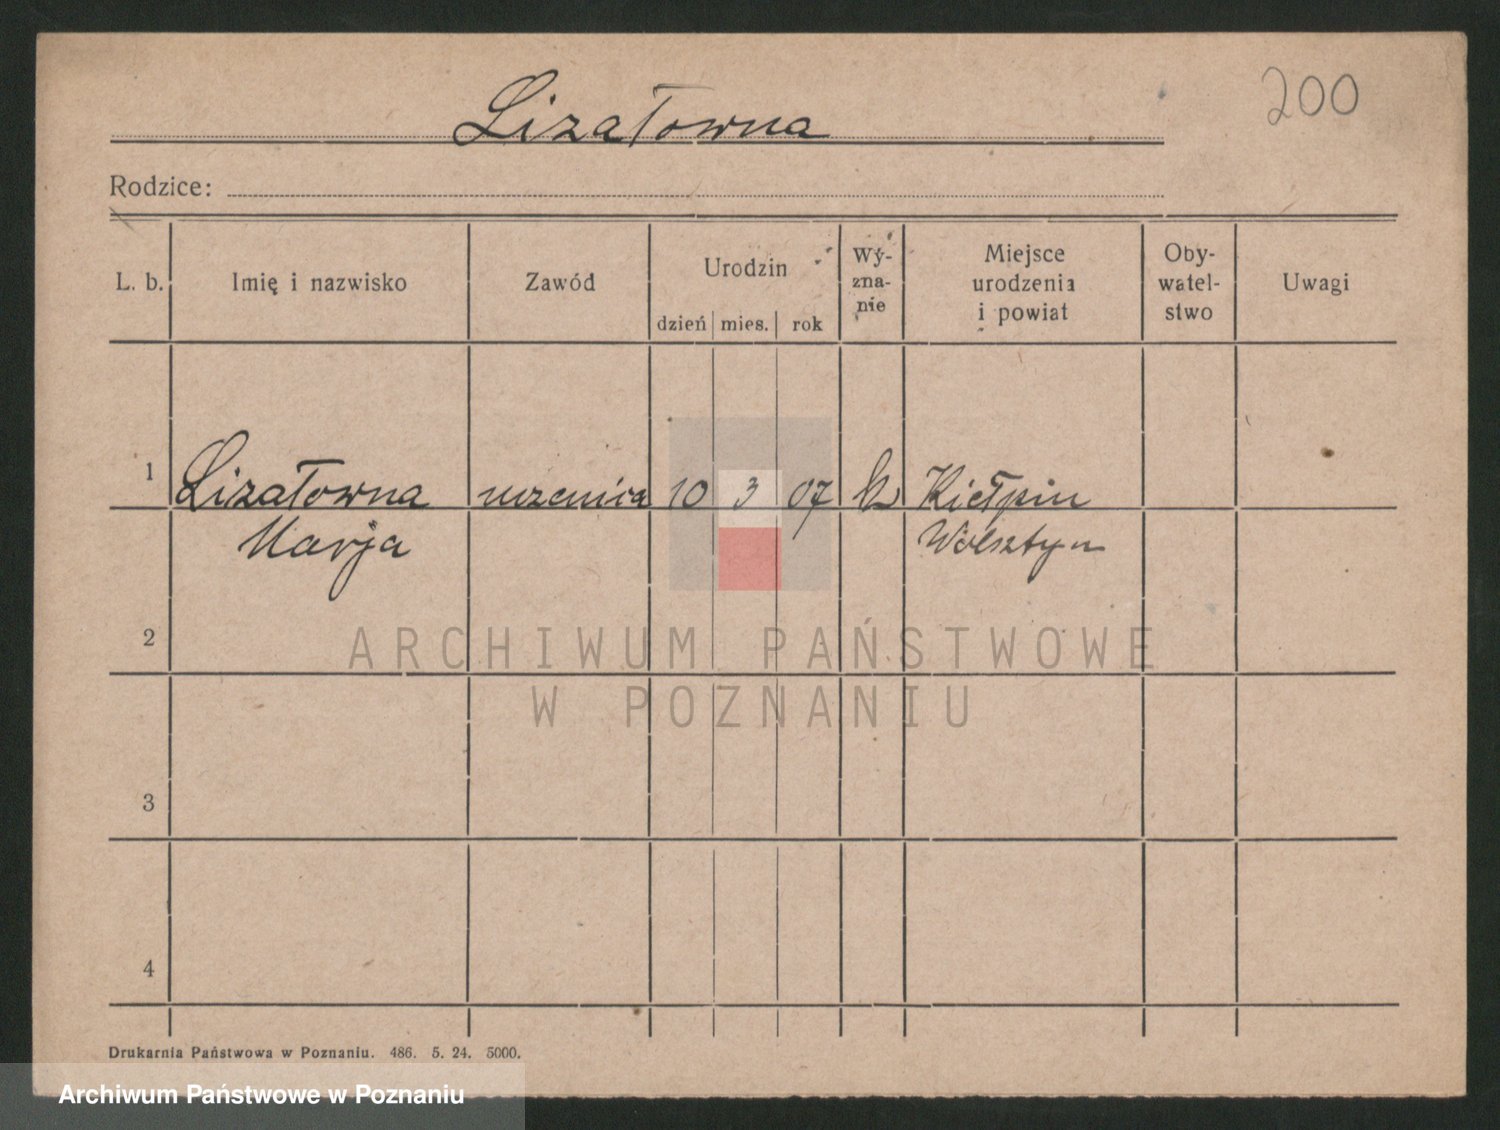 200
Lizałowna
Rodzice:
L. b. Imię i nazwisko Zawód Urodzin dzień mies. rok Wyznanie Miejsce urodzenia i powiat Obywatelstwo Uwagi
1 Lizałowna uczenica 10 3 07 k Kiełpin
Marja Wolsztyn
2
ARCHIWUM PAŃSTWOWE
W POZNANIU
3
4
Drukarnia Państwowa w Poznaniu. 486. 5. 24. 5000.
Archiwum Państwowe w Poznaniu